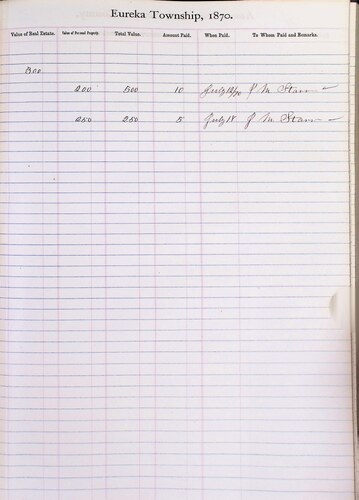 Eureka Township, 1870.
Value of Real Estate. Value of Personal Property. Total Value. Amount Paid. When Paid. To Whom Paid and Remarks.
300
200 500 10 July 18/70 J M Starr
250 250 5 July 18 J M Starr